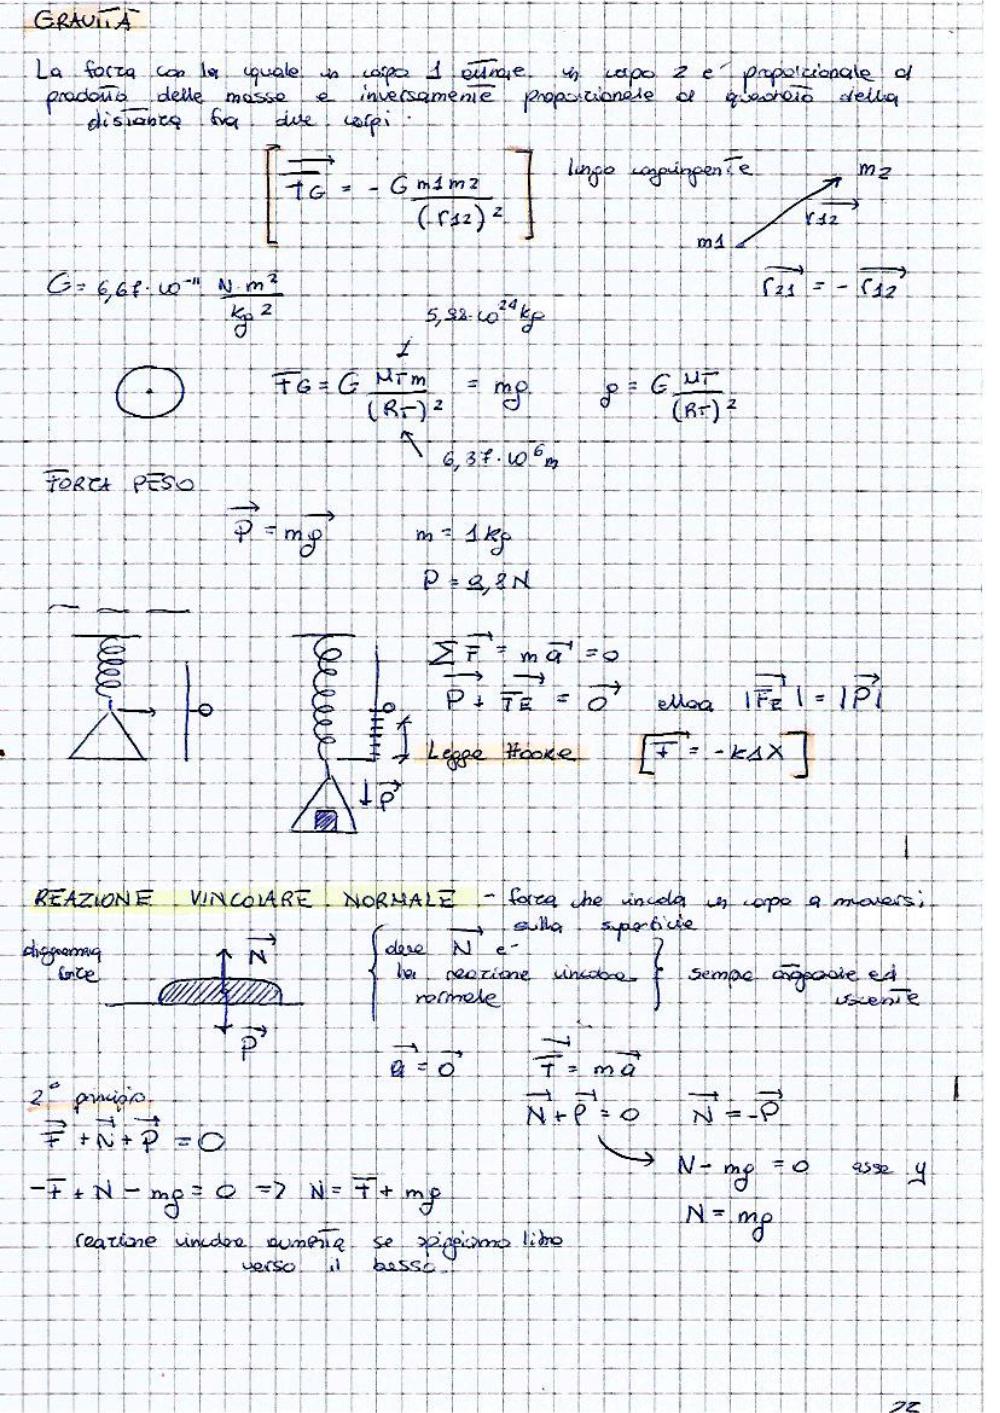 GRAVITÀ
La forza con la quale un corpo 1 attrae un corpo 2 e' proporzionale al
prodotto delle masse e inversamente proporzionale al quadrato della
distanza fra due corpi.
[ FG = - G m1m2 / (r12)² ] lungo congiungente m2
r12
m1
G = 6,67·10⁻¹¹ N·m² / kg² r21 = - r12
5,98·10²⁴ kg
FG = G MT m / (RT)² = mg g = G MT / (RT)²
6,37·10⁶ m
FORZA PESO
P = mg m = 1 kg
P = 9,8 N
ΣF = ma = 0
P + FE = 0 allora |FE| = |P|
Legge Hooke [ F = -kΔX ]
P
REAZIONE VINCOLARE NORMALE - forza che vincola un corpo a muoversi
sulla superficie
diagramma
forze
N
P
dove N e'
la reazione vincolare
normale
sempre ed
uscente
a = 0 F = ma
2° principio N + P = 0 N = -P
F + N + P = 0
N - mg = 0 asse y
-F + N - mg = 0 => N = F + mg
N = mg
reazione vincolare aumenta se spingiamo libro
verso il basso.
22